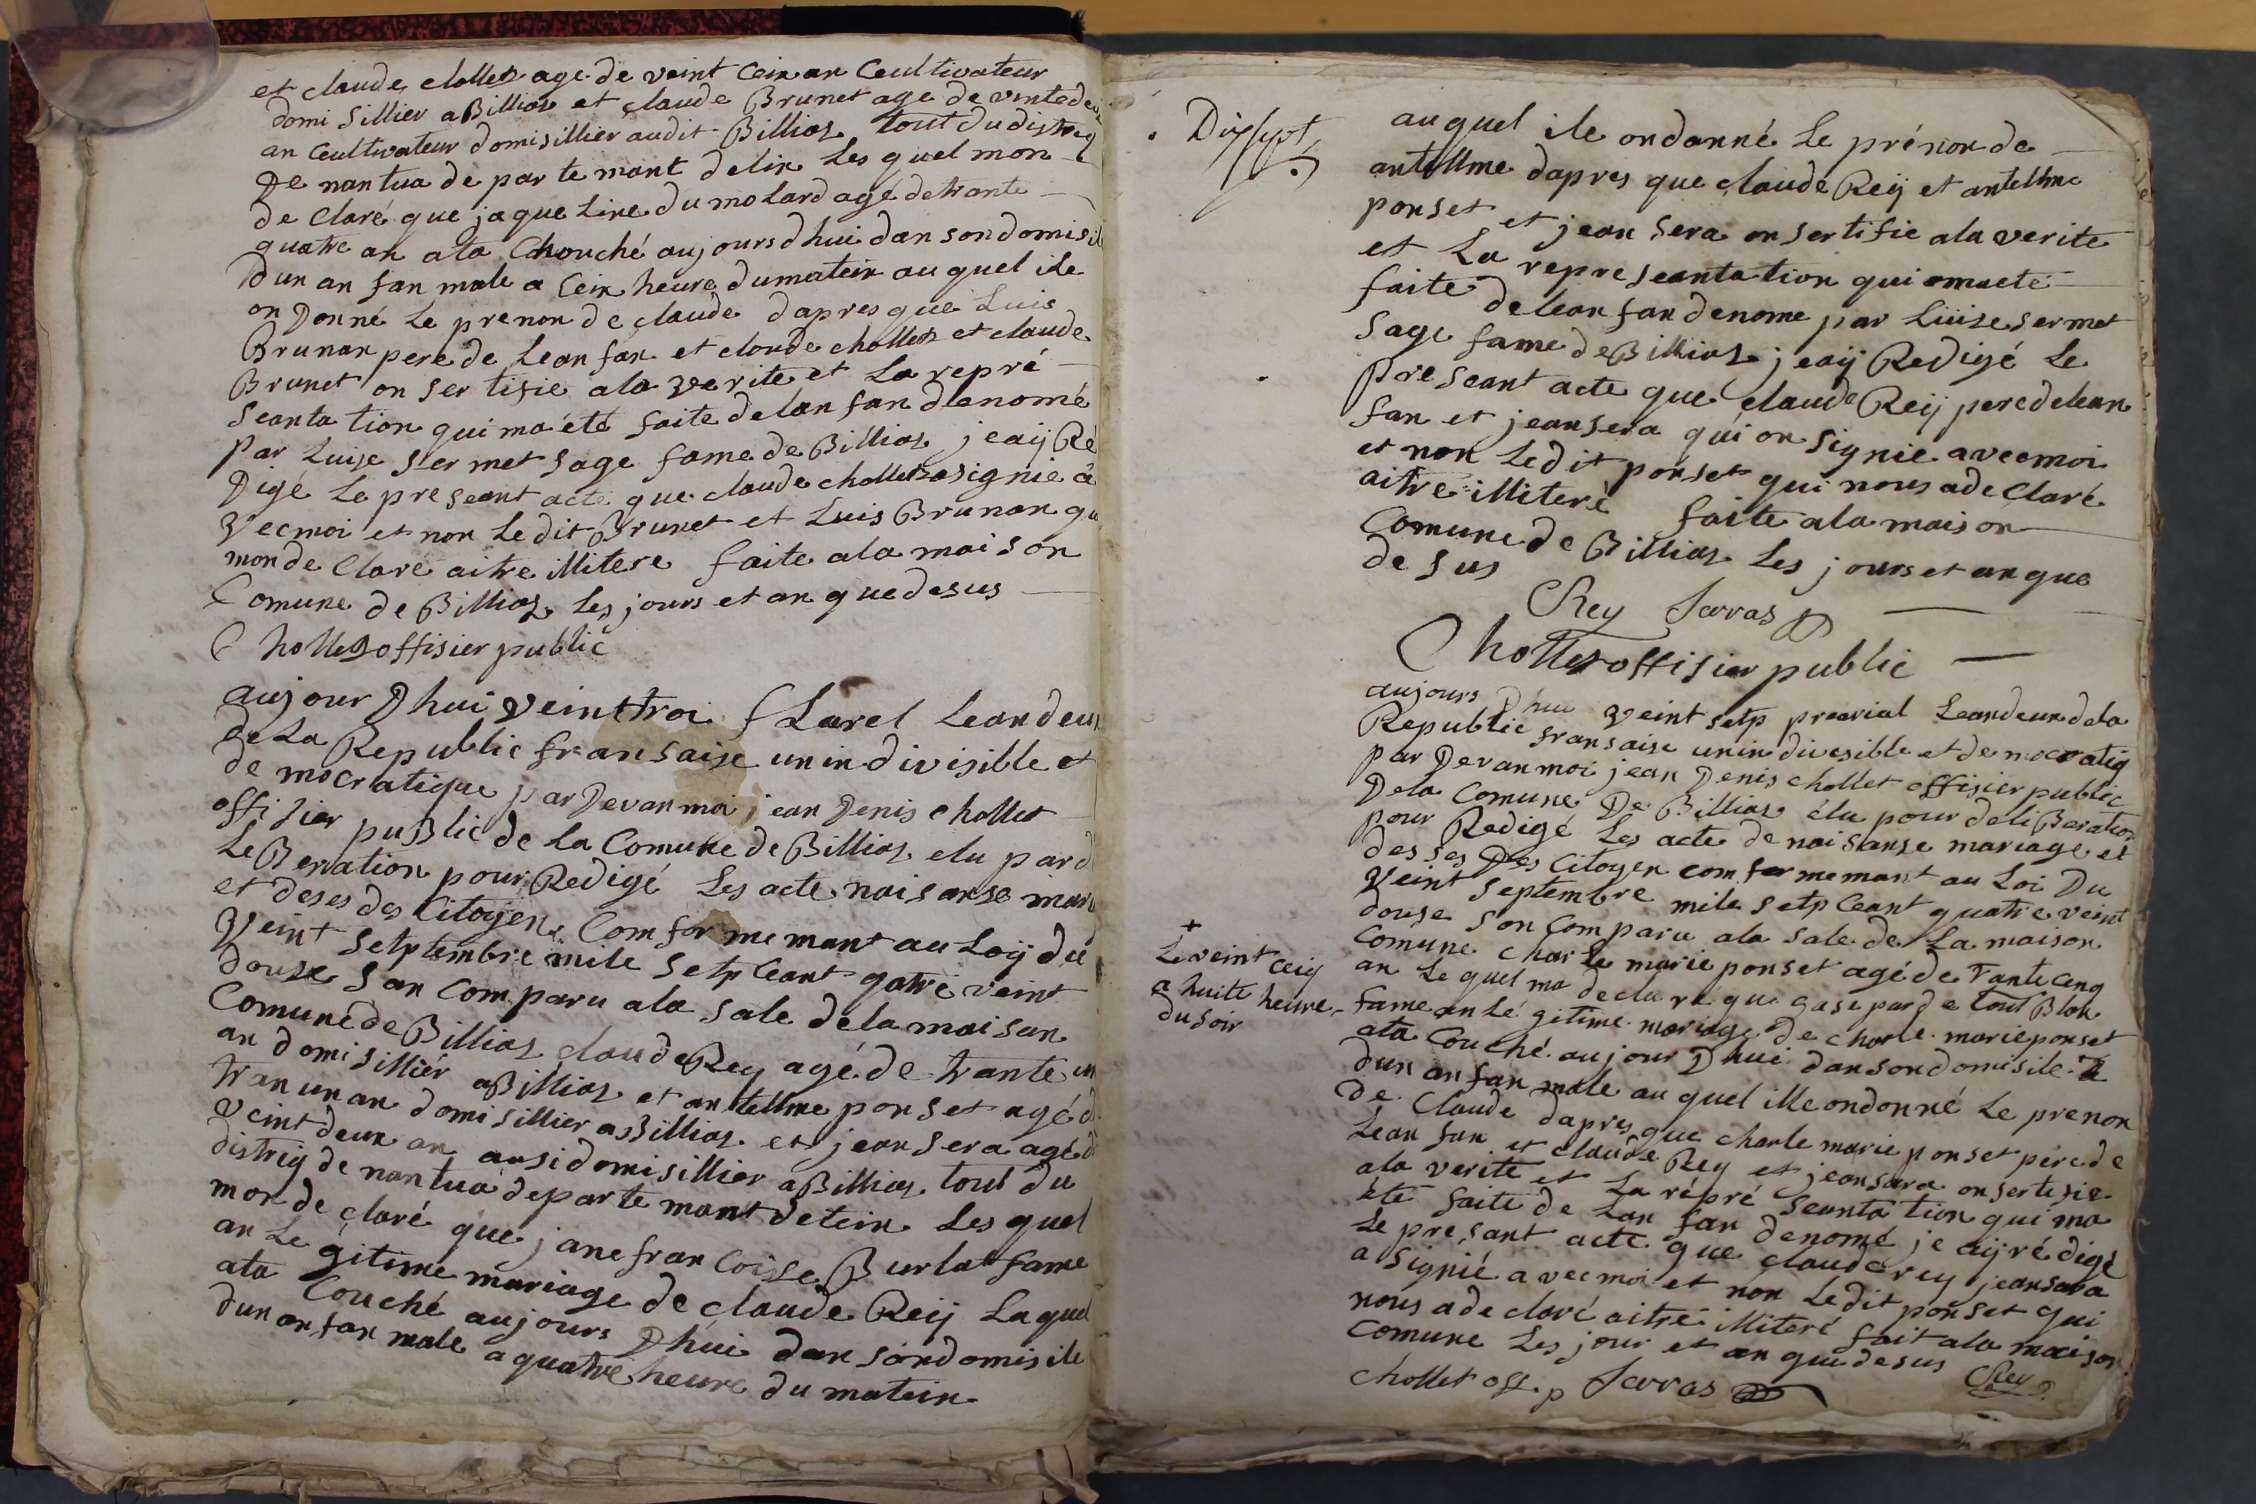 et claude chollet age de veint cein an Ceultivateur
domi sillier a Billias et claude Brunet age de vinte deu
an Ceultivateur domisillier audit Billias tout du distreq
De nantua de par te mant delin Les quel mon
de Claré que jaque Line du molard age de trante
quatre an ata Chouché aujours dhui dan son domisil
Dun an fan male a Cein heure du matein au quel ile
on Donné Le prenon de claude dapres que Luis
Brunan pere de Lean fan et cloude chollet et claude
Brunet on ser tifie ala verite et La repré
seanta tion qui ma été faite delan fan denomé
Par Luise ser met sage fame de Billias jeaij Ré
Digé Le preseant acte que claude chollet a signie a
Vec moi et non Ledit Brunet et Luis Brunan qu
monde Clare aitre illitere faite ala maison
Comune de Billias Les jours et an que desus
Chollet offisier public
aujour Dhui veint troi fLarel Lean deux
de La Republic fransaise un in divisible et
de mocratique par Devan moi jean Denis chollet
offisier puBlic de La Comune de Billias elu par d
Le Beration pour Redigé Les acte naisanse mari
et deses des Citoyen Com for me mant au Loij du
Veint setptembre mile setp Ceant gatre veint
douse san Comparu ala sale dela maisan
Comune de Billias claude Rey agé de trante un
an domi sillier a Billias et antellme ponset agé d
tran un an domisillier a Billias et jean sera agé d
veint deux an ausi domisillier a Billias tout du
distrig de nantua departe mant detein Les quel
mon de claré que jane fran Coise Burlat fame
an Le gitime mariage de claude Reij La quel
ata Couché aujours Dhui dan son domisile
dun an fan male a quatre heure du matein
Dix sept
auquel ile ondanné Le prénon de
antellme dapres que claude Reij et antellme
ponset et jean sera on sertifie ala verite
et La represeantation qui omaete
faite delean fan denome par Luise sermet
sage fame de Billias jeaij Redigé Le
preseant acte que claude Reij pere delean
fan et jean sera qui on signie avecmoi
et non Ledit ponset qui nous a de Claré
aitré illiteré faite ala maison
Comune de Billias Les jours et an que
de sus
Rey Sarras
Chollet offisier public
aujours Dhui veint setp prearial Leandeux dela
Republic fransaise unin divesible et de mocratiq
par Devan moi jean Denis chollet offisier public
Dela Comune De Billias élu pour deliBeration
pour Redigé Les acte de nai sanse mariage et
des ses Des Citoyen com for me mant au Loi Du
Veint septembre mile setp Ceant quatre veint
douse son Comparu ala sale de La maison
Comune Charle marie ponset agé de Tante Cenq
+
Le veint Ceig
a huite heure
du soir
an Le quel ma declare que gaspar de tout Blan
fame an Lé gitime mariage de charle marie ponset
ata Couché aujour Dhui dan son domisile
dun an fan male au quel ille ondonné Le prenon
De Claude dapres que charle marie ponset pere de
Lean fan et claude Rey et jean sara on sertifie
ala verite et La répré seanta tion qui ma
été faite de Lan fan denomé je aij ré digé
Le presant acte que claude rey jean sara
a Signié avec moi et non Ledit ponset qui
nous a de claré aitré illiteré fait ala maison
Comune Les jour et an que desus Rey
chollet off. p Sarras